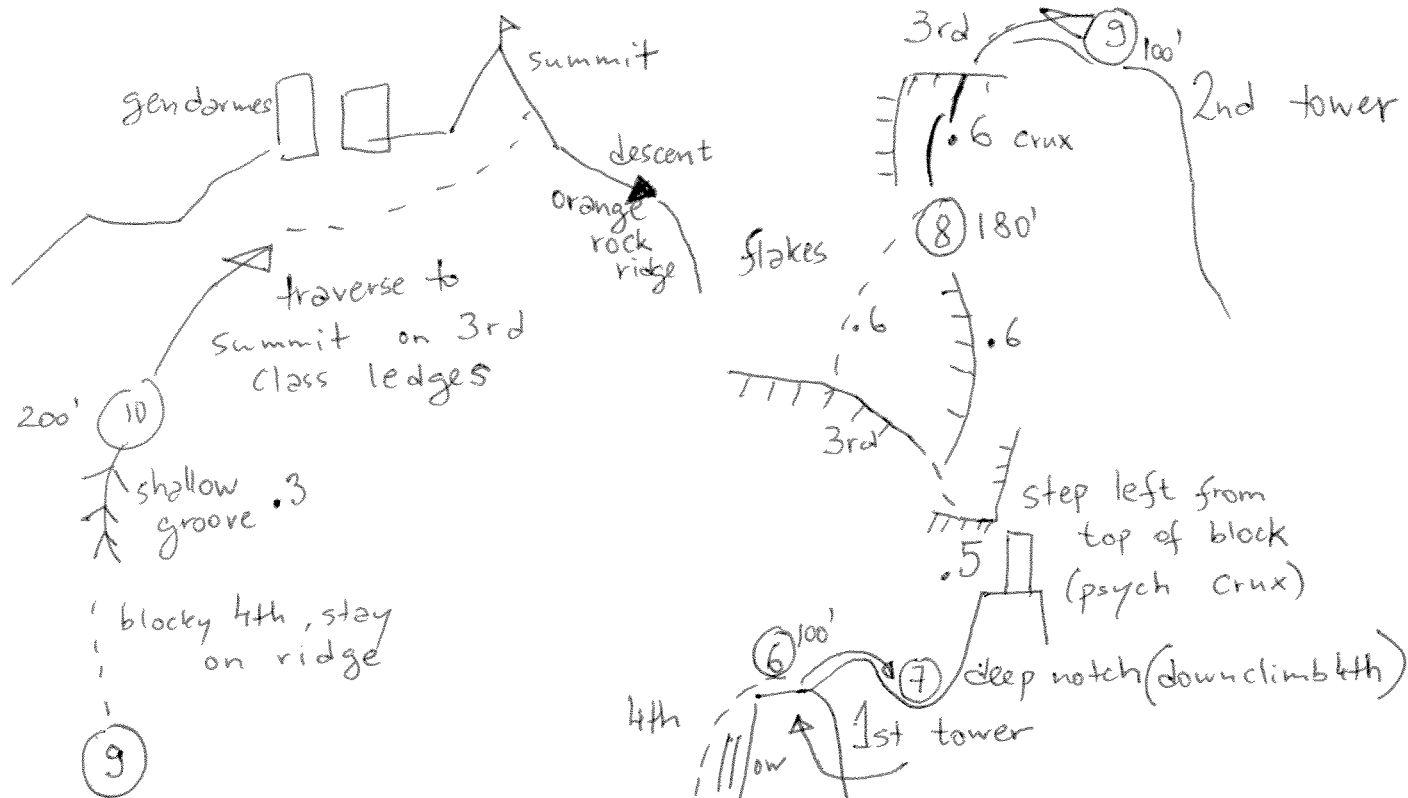 summit
gendarmes
descent
orange
rock
ridge
traverse to
summit on 3rd
class ledges
200'
10
shallow
groove .3
blocky 4th, stay
on ridge
9
3rd
9
100'
2nd tower
.6 crux
8
180'
flakes
.6
.6
3rd
step left from
top of block
(psych crux)
.5
6
100'
7
deep notch (downclimb 4th)
4th
1st tower
ow